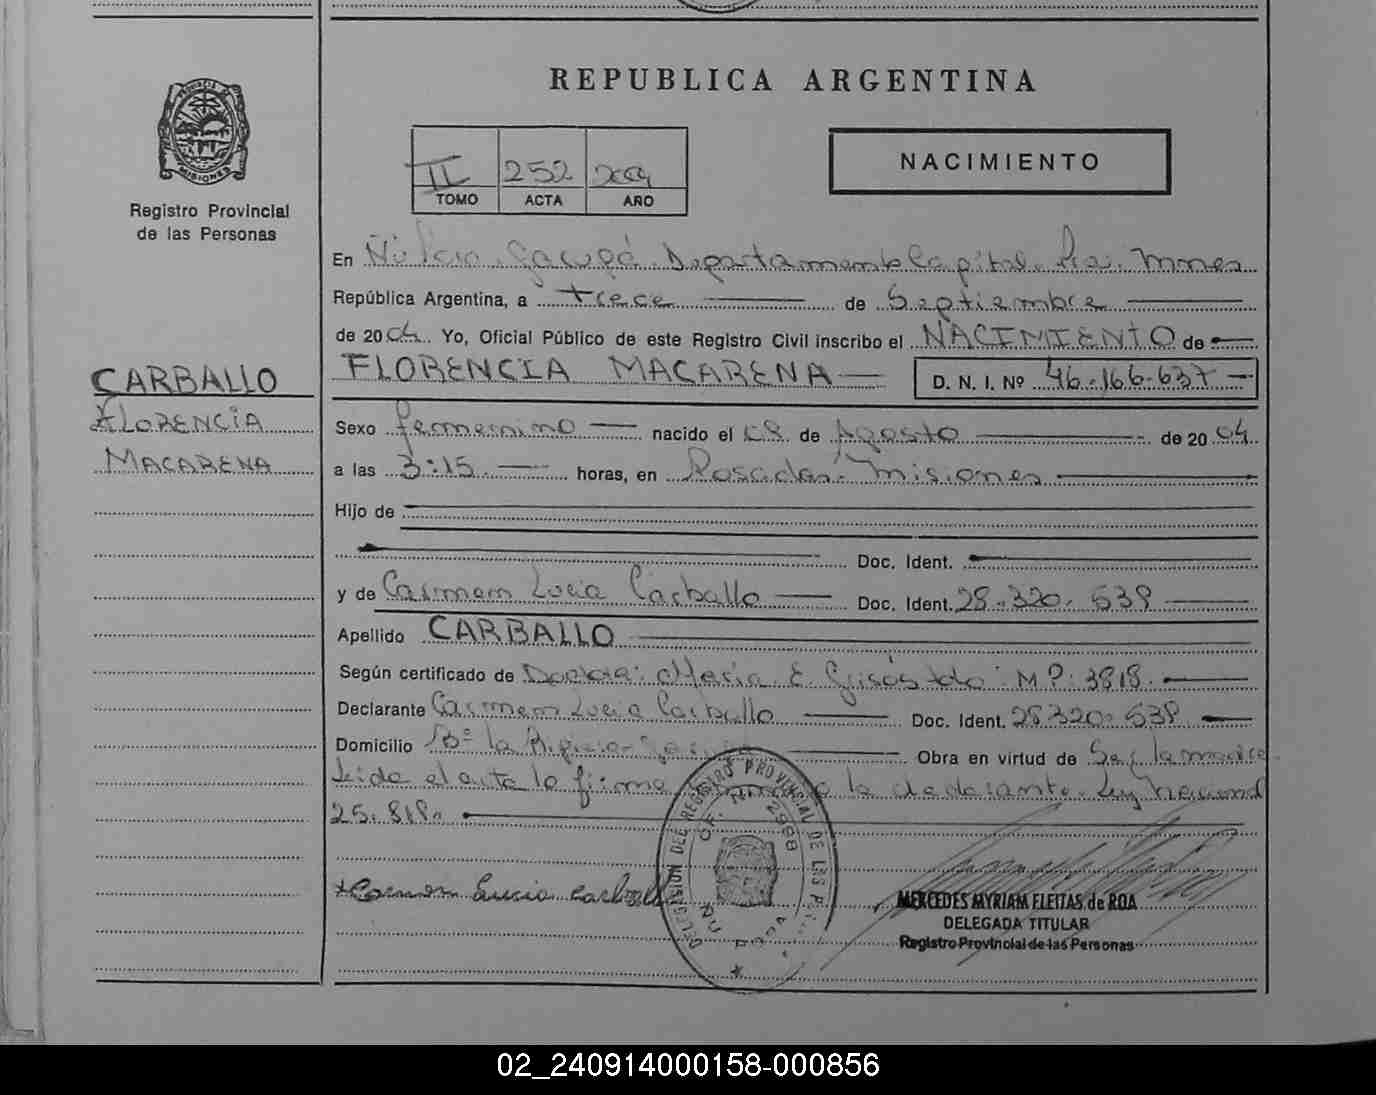 REPUBLICA ARGENTINA
PROVINCIA DE MISIONES
Registro Provincial
de las Personas
II 252
TOMO ACTA AÑO
NACIMIENTO
En Garupá Departamento Capital
República Argentina, a trece de Septiembre
de 2004 Yo, Oficial Público de este Registro Civil inscribo el NACIMIENTO de
CARBALLO
FLORENCIA
MACARENA
FLORENCIA MACARENA D. N. I. Nº 46.166.637
Sexo femenino nacido el de Agosto de 2004
a las 3:15 horas, en Posadas Misiones
Hijo de
Doc. Ident.
y de Carmen Lucia Carballo Doc. Ident.
Apellido CARBALLO
Según certificado de Doctora: Maria E M.P: 3818
Declarante Carmen Lucia Carballo Doc. Ident.
Domicilio Bº la Obra en virtud de
Leida el acta la firma la declarante. Ley Nacional
25.818.
Carmen Lucia Carballo
DELEGACION DEL REGISTRO PROVINCIAL DE LAS
OF. Nº 2988
MERCEDES MYRIAM FLEITAS de ROA
DELEGADA TITULAR
Registro Provincial de las Personas
02_240914000158-000856